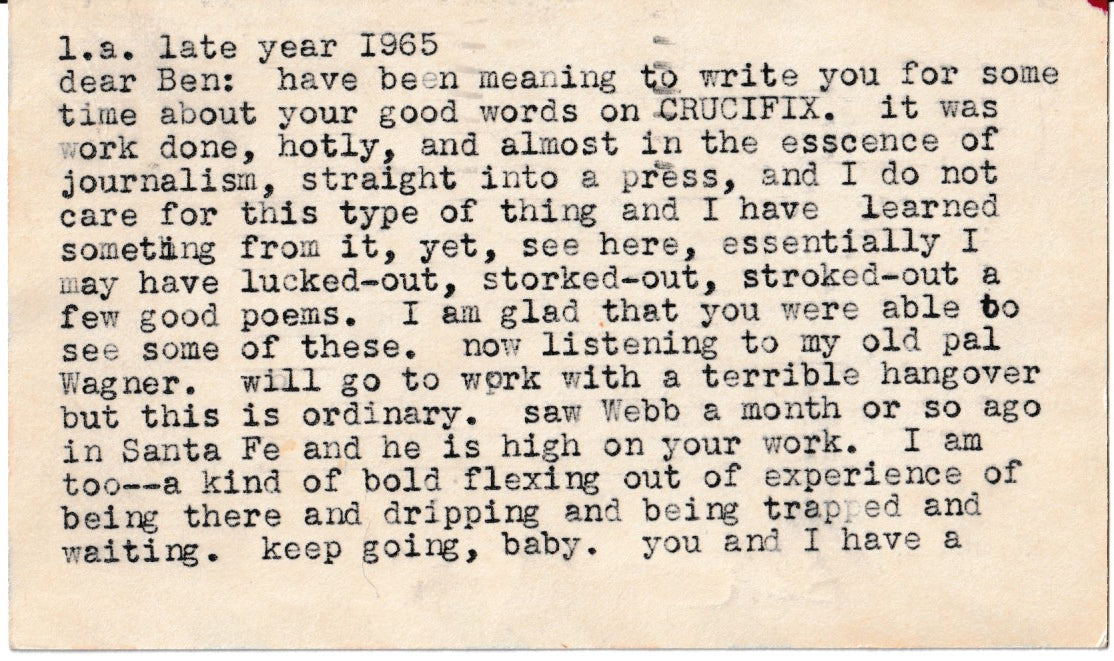 l.a. late year I965
dear Ben:  have been meaning to write you for some
time about your good words on CRUCIFIX.  it was
work done, hotly, and almost in the esscence of
journalism, straight into a press, and I do not
care for this type of thing and I have  learned
something from it, yet, see here, essentially I
may have lucked-out, storked-out, stroked-out a
few good poems.  I am glad that you were able to
see some of these.  now listening to my old pal
Wagner.  will go to work with a terrible hangover
but this is ordinary.  saw Webb a month or so ago
in Santa Fe and he is high on your work.  I am
too--a kind of bold flexing out of experience of
being there and dripping and being trapped and
waiting.  keep going, baby.  you and I have a